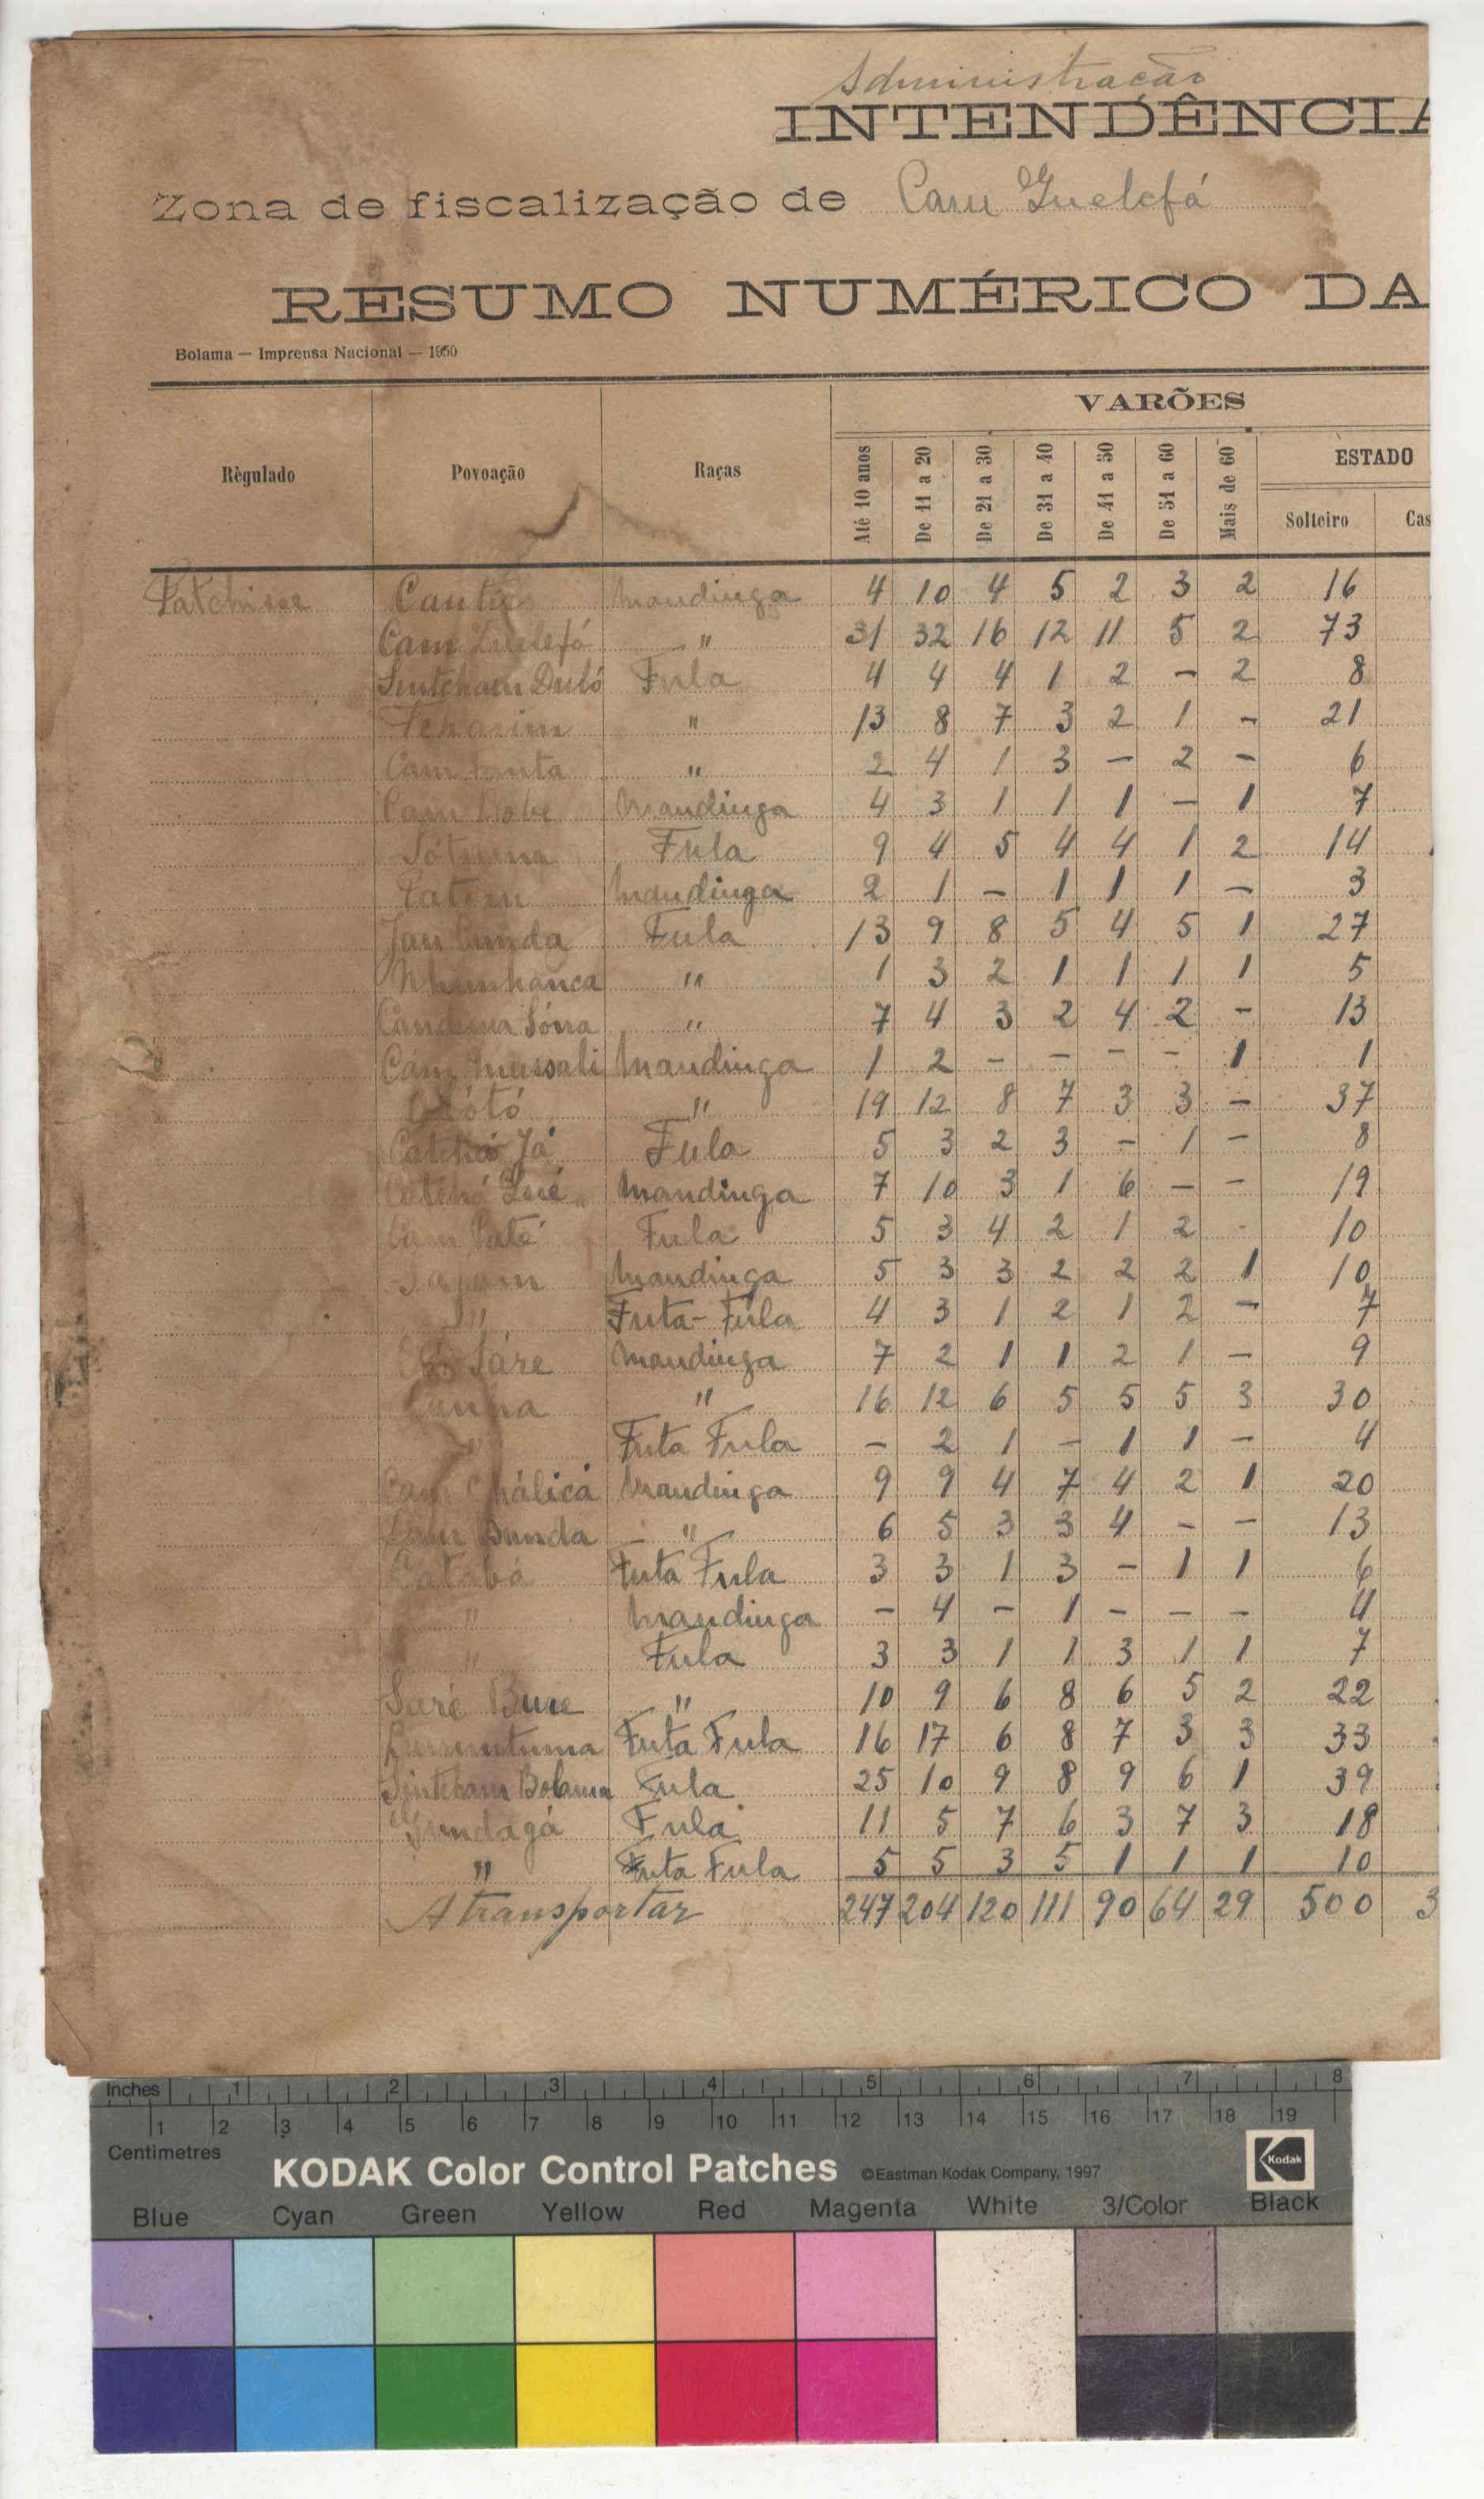 Administração
INTENDÊNCIA
Zona de fiscalização de Cam Guelefá
RESUMO NUMÉRICO DA
Bolama — Imprensa Nacional — 1950
VARÕES
Règulado Povoação Raças Até 10 anos De 11 a 20 De 21 a 30 De 31 a 40 De 41 a 50 De 51 a 60 Mais de 60 ESTADO
Solteiro Cas
Mandinga 4 10 4 5 2 3 2 16
Cam Guelefá " 31 32 16 12 11 5 2 73
Sintcham Duló Fula 4 4 4 1 2 - 2 8
" 13 8 7 3 2 1 - 21
Cam Fanta " 2 4 1 3 - 2 - 6
Cam Mandinga 4 3 1 1 1 - 1 7
Fula 9 4 5 4 4 1 2 14
Mandinga 2 1 - 1 1 1 - 3
Jau tunda Fula 13 9 8 5 4 5 1 27
" 1 3 2 1 1 1 1 5
Sóna " 7 4 3 2 4 2 - 13
Cam Mandinga 1 2 - - - - 1 1
" 19 12 8 7 3 3 - 37
Já Fula 5 3 2 3 - 1 - 8
Mandinga 7 10 3 1 6 - - 19
Cam Paté Fula 5 3 4 2 1 2 - 10
Mandinga 5 3 3 2 2 2 1 10
" Futa-Fula 4 3 1 2 1 2 - 7
Sáre Mandinga 7 2 1 1 2 1 - 9
" 16 12 6 5 5 5 3 30
" Futa Fula - 2 1 - 1 1 - 4
Cam Mandinga 9 9 4 7 4 2 1 20
Bunda " 6 5 3 3 4 - - 13
Catabá Futa Fula 3 3 1 3 - 1 1 6
" Mandinga - 4 - 1 - - - 4
" Fula 3 3 1 1 3 1 1 7
Saré Bure " 10 9 6 8 6 5 2 22
Futa Fula 16 17 6 8 7 3 3 33
Sintcham Bolama Fula 25 10 9 8 9 6 1 39
Gundagá Fula 11 5 7 6 3 7 3 18
" Futa Fula 5 5 3 5 1 1 1 10
A transportar 247 204 120 111 90 64 29 500 3
Inches 1 2 3 4 5 6 7 8
1 2 3 4 5 6 7 8 9 10 11 12 13 14 15 16 17 18 19
Centimetres
KODAK Color Control Patches ©Eastman Kodak Company, 1997 Kodak
Blue Cyan Green Yellow Red Magenta White 3/Color Black